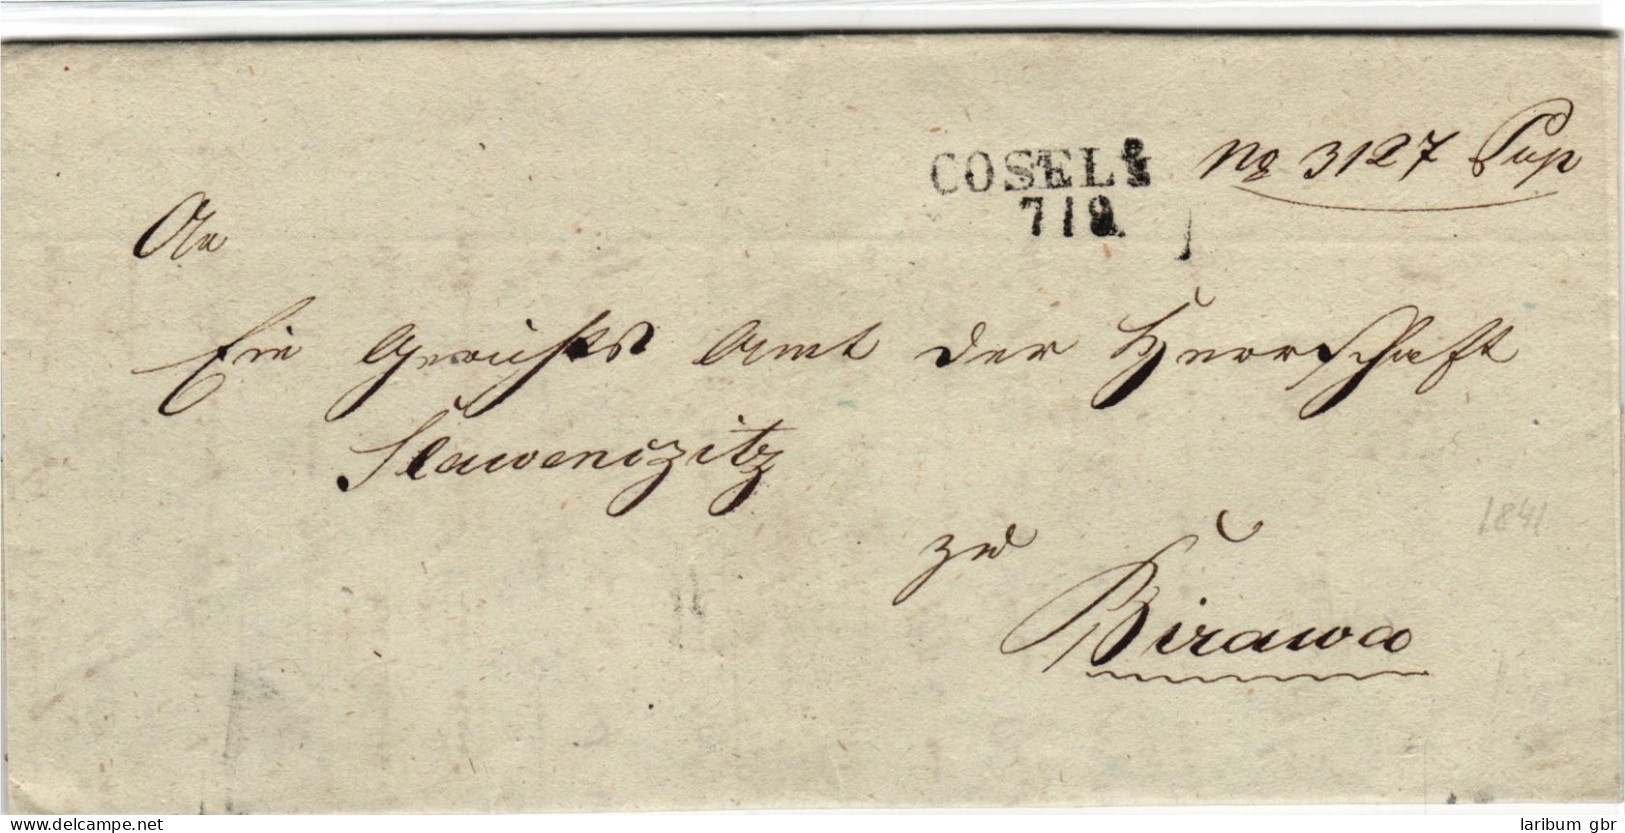 COSEL
7/9.
No 3127 Pup
An
Ein Gerichts Amt der Herrschaft
Slawenczitz
zu
Birawa
1841
delcampe.net
laribum gbr